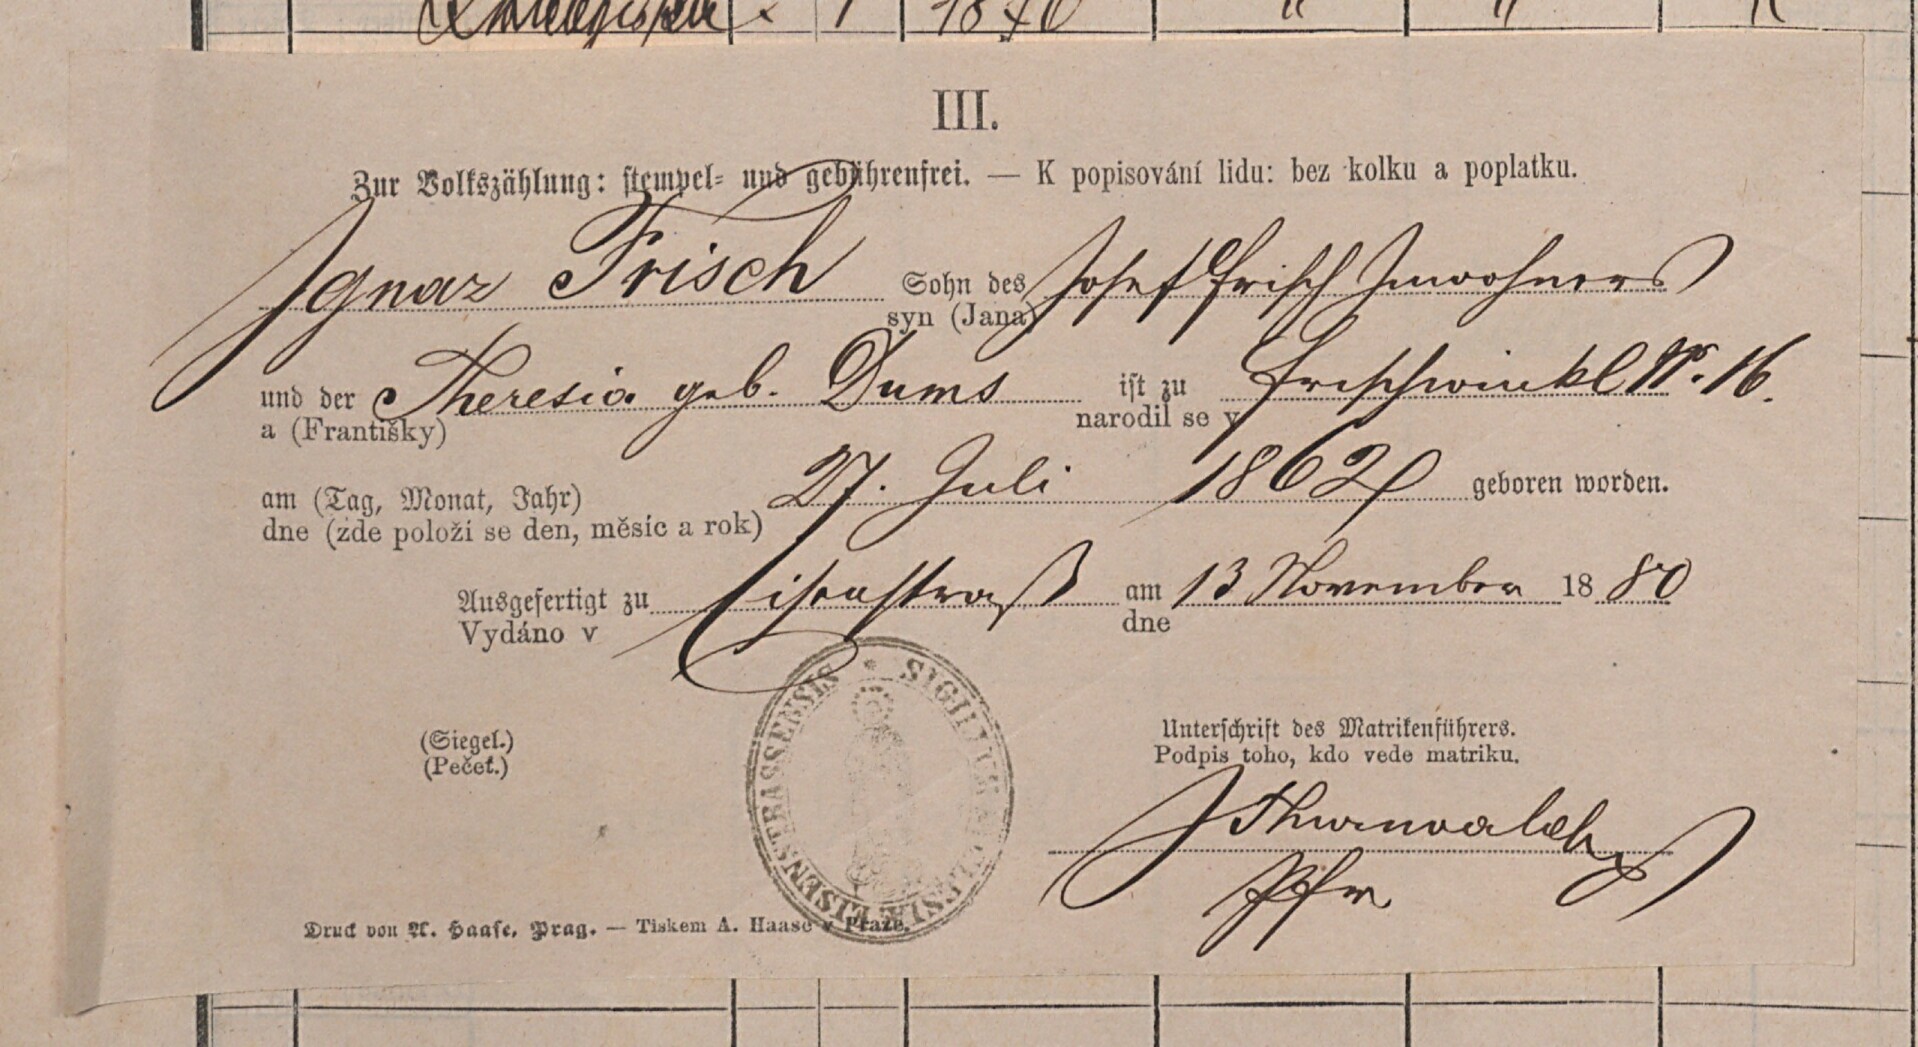 1 1870 " " "
III.
Zur Volkszählung: stempel- und gebührenfrei. — K popisování lidu: bez kolku a poplatku.
Ignaz Frisch Sohn des Josef Frisch Inwohners
syn (Jana)
und der Theresia geb. Dums ist zu Frischwinkl No. 16.
a (Františky) narodil se v
am (Tag, Monat, Jahr) 27. Juli 1862 geboren worden.
dne (zde položí se den, měsíc a rok)
Ausgefertigt zu Eisenstraß am 13 November 1880
Vydáno v dne
SIGILLUM ECCLESIÆ EISENSTRASSENSIS *
(Siegel.) Unterschrift des Matrikenführers.
(Pečeť.) Podpis toho, kdo vede matriku.
Pfr.
Druck von A. Haase, Prag. — Tiskem A. Haase v Praze.